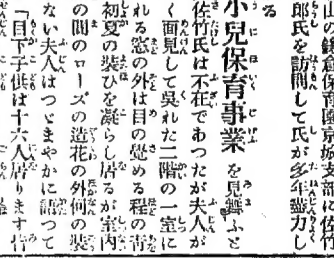 山の鎌倉保育園京城支部に佐竹
郎氏を訪問して氏が多年盡力し
る
小兒保育事業を見舞ふと
佐竹氏は不在であつたが夫人が
く面見して呉れた二階の一室に
れる窓の外は目の覺める程の靑
初夏の裝ひを凝らし居るが室內
の間のローズの造花の外何の裝
ない夫人はつゝまやかに語つて
「目下子供は十六人居ります皆